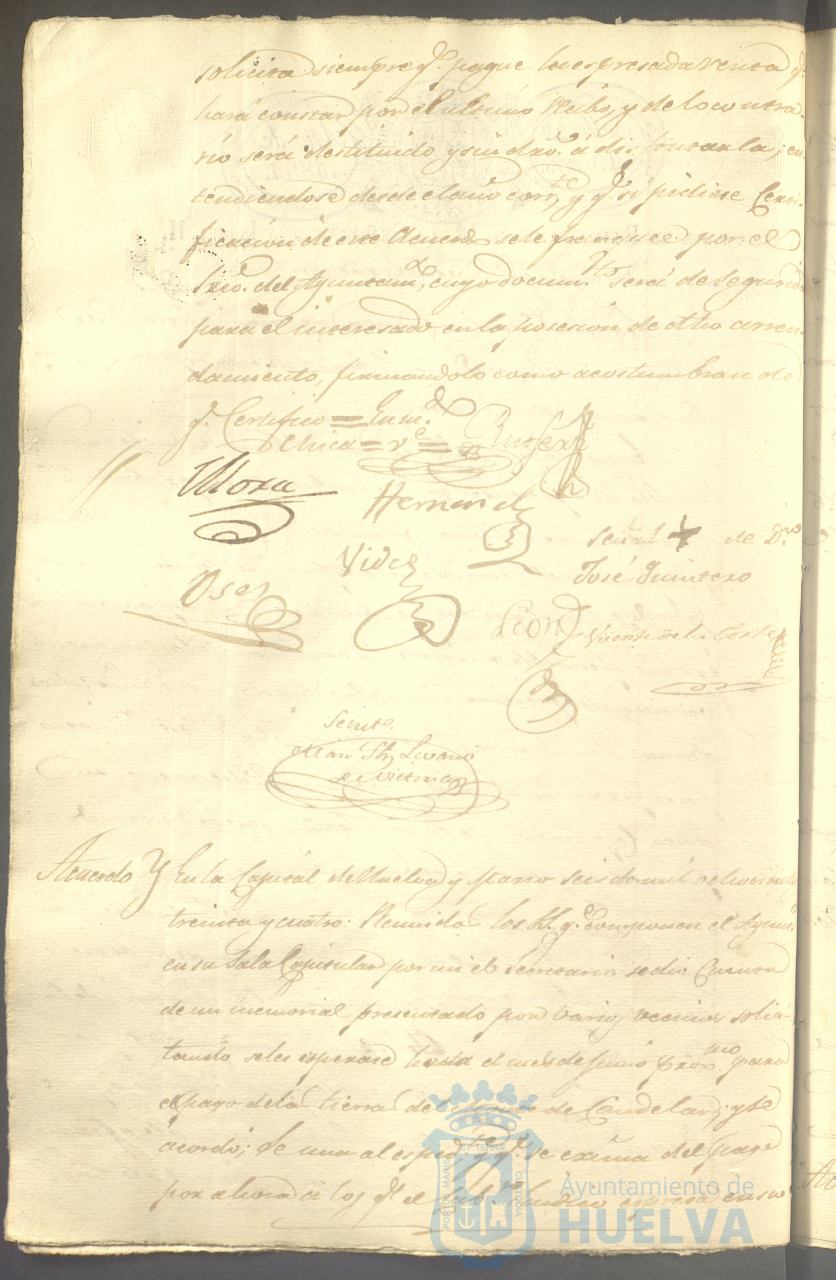 solicita siempre q.e pague la espresada renta q.e
hará constar por el ultimo Recibo, y de lo contra-
rio será destituido y sin dro. á disfrutarla; en-
tendiendose desde el año corr.te, y q.e si pidiese Certi-
ficacion de este Acuerdo se le franquee por el
Srio. del Ayuntam.to, cuyo docum.to será de seguridad
para el interesado en la posesion de dho arren-
damiento, firmandolo como acostumbran de
q.e Certifico =
Chica = v.e =
Mora
Hernand
Señal + de D.n
José Quintero
Videz
León
Vicente de la Corte
Secret.o
de Victoria
Acuerdo Y En la Capital de Huelva y Marzo seis de mil ochocientos
treinta y cuatro: Reunidos los SS. q.e componen el Ayunt.
en su Sala Capitular por mi el Secretario se dio Cuenta
de un memorial presentado por varios vecinos solici-
tando se les esperase hasta el mes de Junio prox.mo para
el pago de las tierras de de Candelar; y se
acordó; Se una al esped.te y q.e se exima del pago
por ahora á los q.e el Cab. Sindico espresa en su
PORTUS MARIS
ET TERRAE
CUSTODIA
Ayuntamiento de
HUELVA